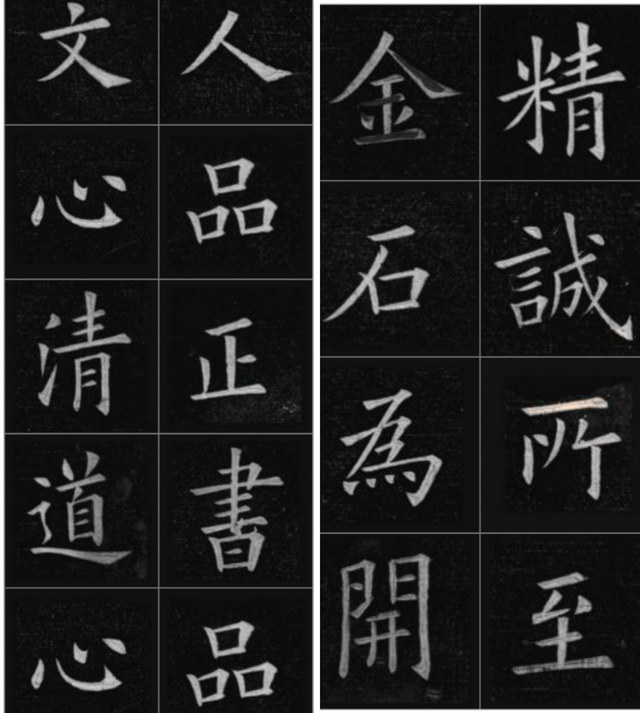 精誠所至
金石為開
人品正書品
文心清道心